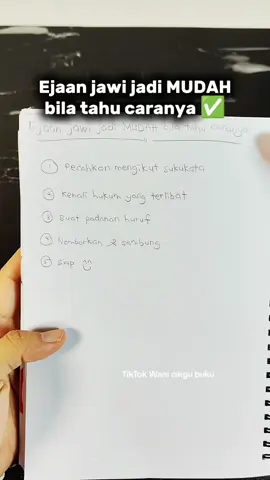 Ejaan jawi jadi MUDAH
bila tahu caranya ✅
Ejaan jawi jadi MUDAH bila tahu caranya
① Pecahkan mengikut sukukata
② Kenali hukum yang terlibat
③ Buat padanan huruf
④ Nomborkan & sambung
⑤ Siap
TikTok Wani cikgu buku